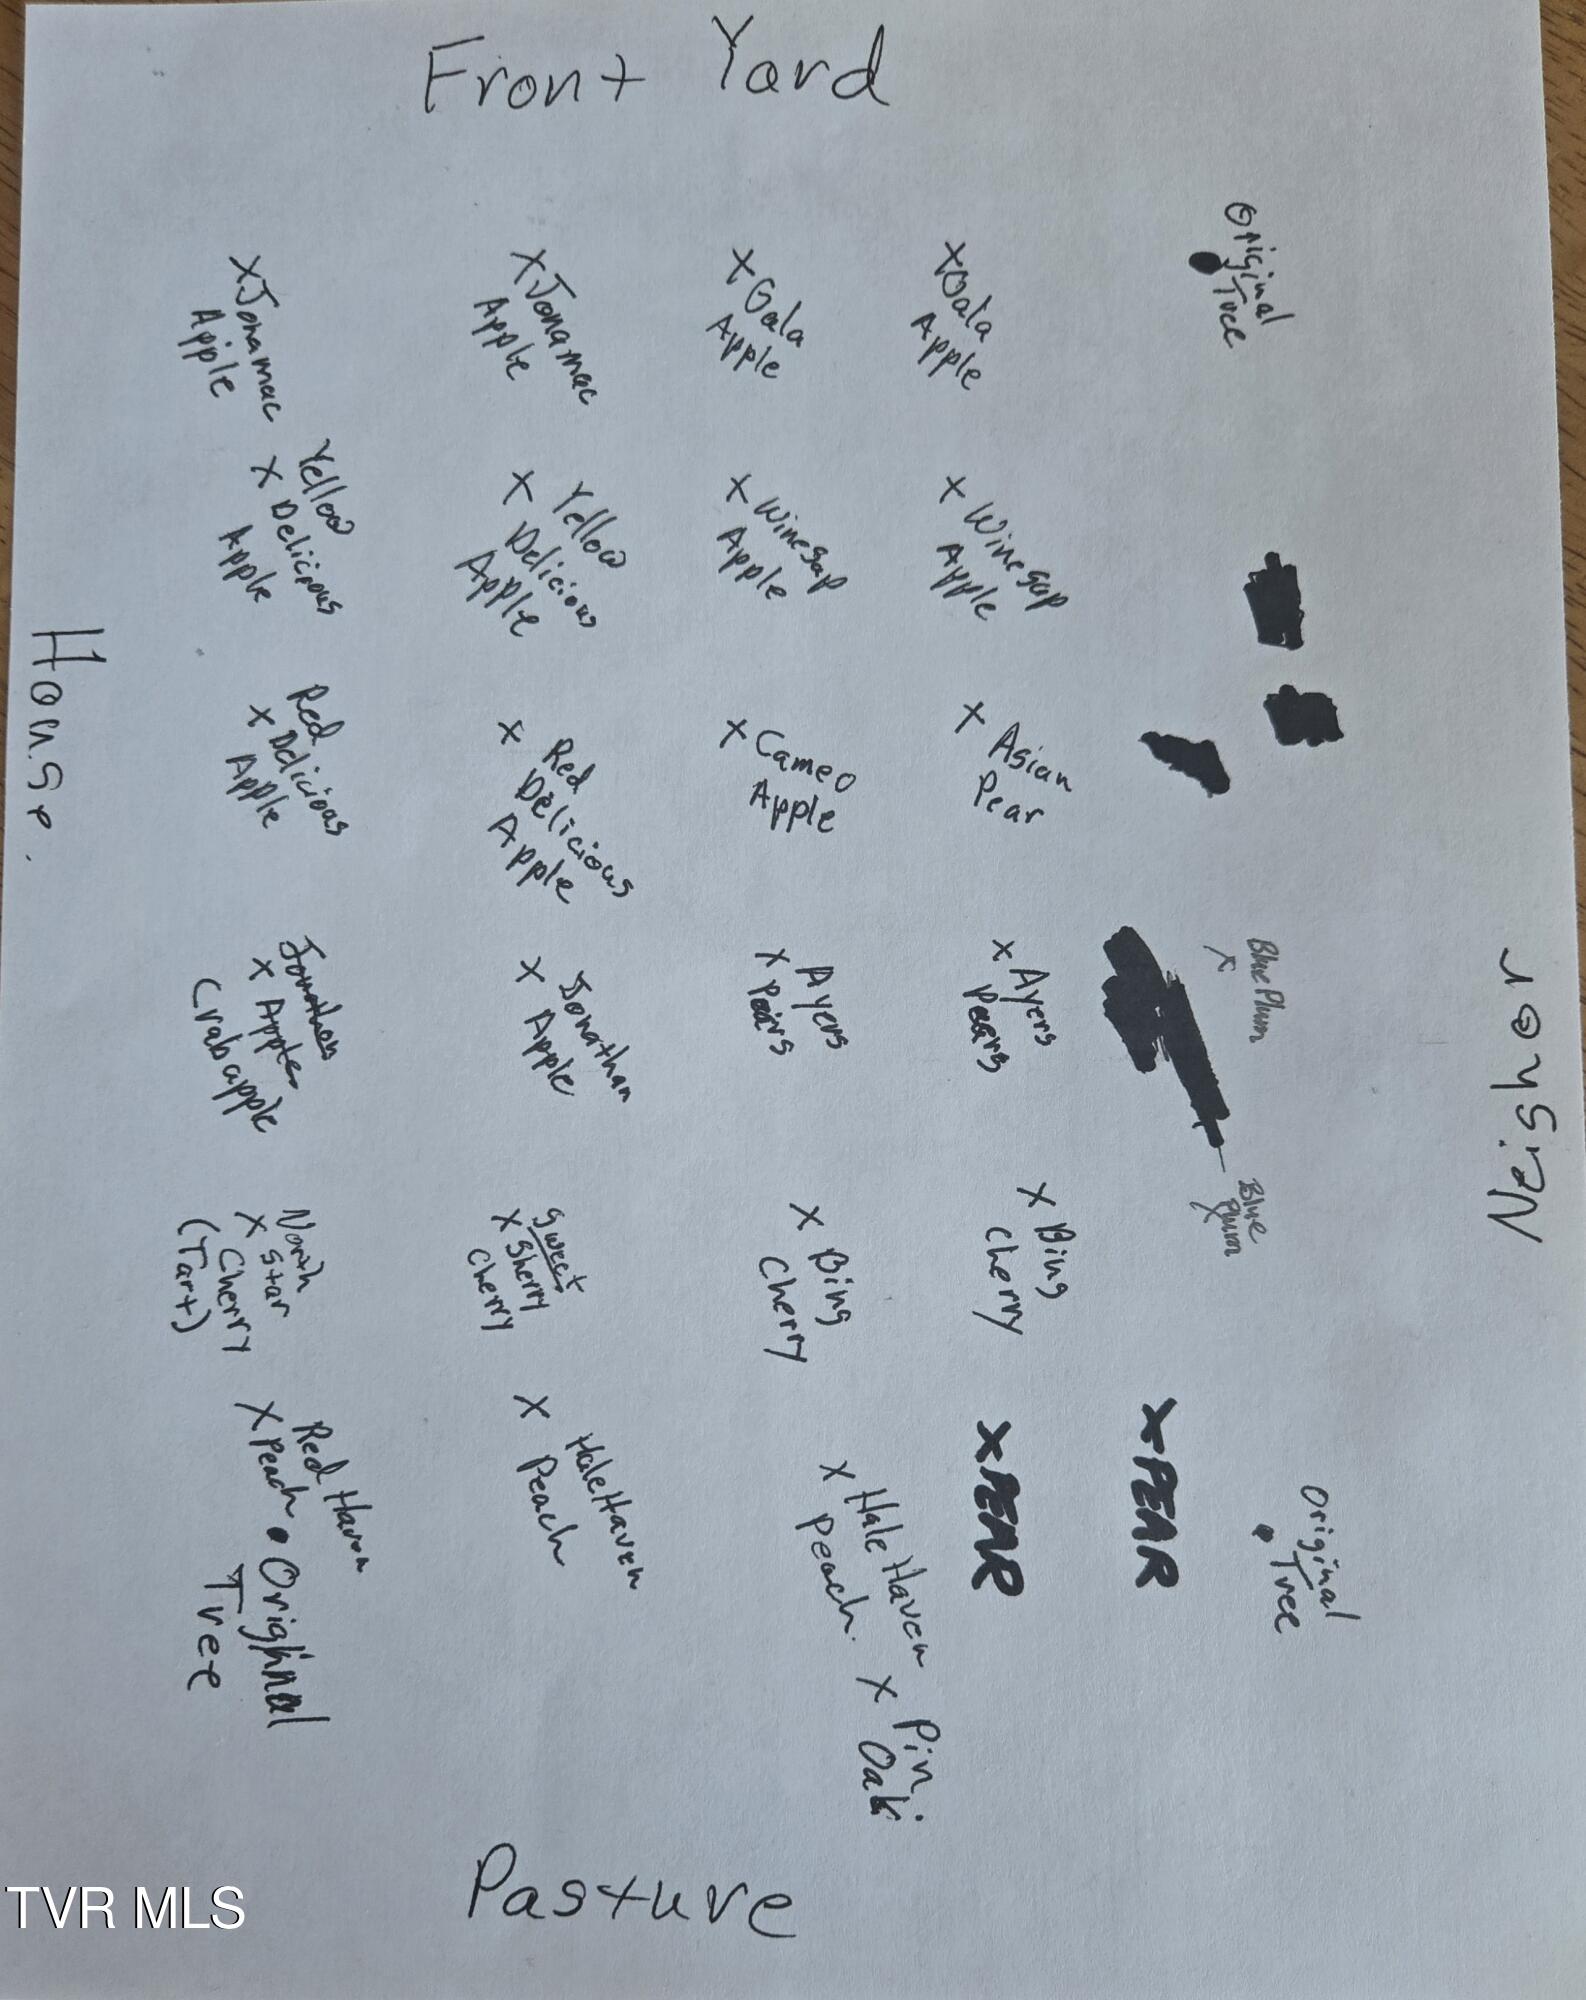 Front Yard
Original
Tree
X Jonamac
Apple
X Jonamac
Apple
X Gala
Apple
X Gala
Apple
Yellow
X Delicious
Apple
X Yellow
Delicious
Apple
X Winesap
Apple
X Winesap
Apple
House.
Red
X Delicious
Apple
X Red
Delicious
Apple
X Cameo
Apple
X Asian
Pear
Jonathan
X Apple
Crabapple
X Jonathan
Apple
X Ayers
Pears
X Ayers
Pears
Blue Plum
X
Neighor
North
X Star
Cherry
(Tart)
Sweet
X Sherry
Cherry
X Bing
Cherry
X Bing
Cherry
Blue
Plum
X
Red Haven
X Peach
Original
Tree
X HaleHaven
Peach
X Hale Haven
Peach.
X PEAR
X PEAR
Original
Tree
X Pin
Oak
Pasture
TVR MLS